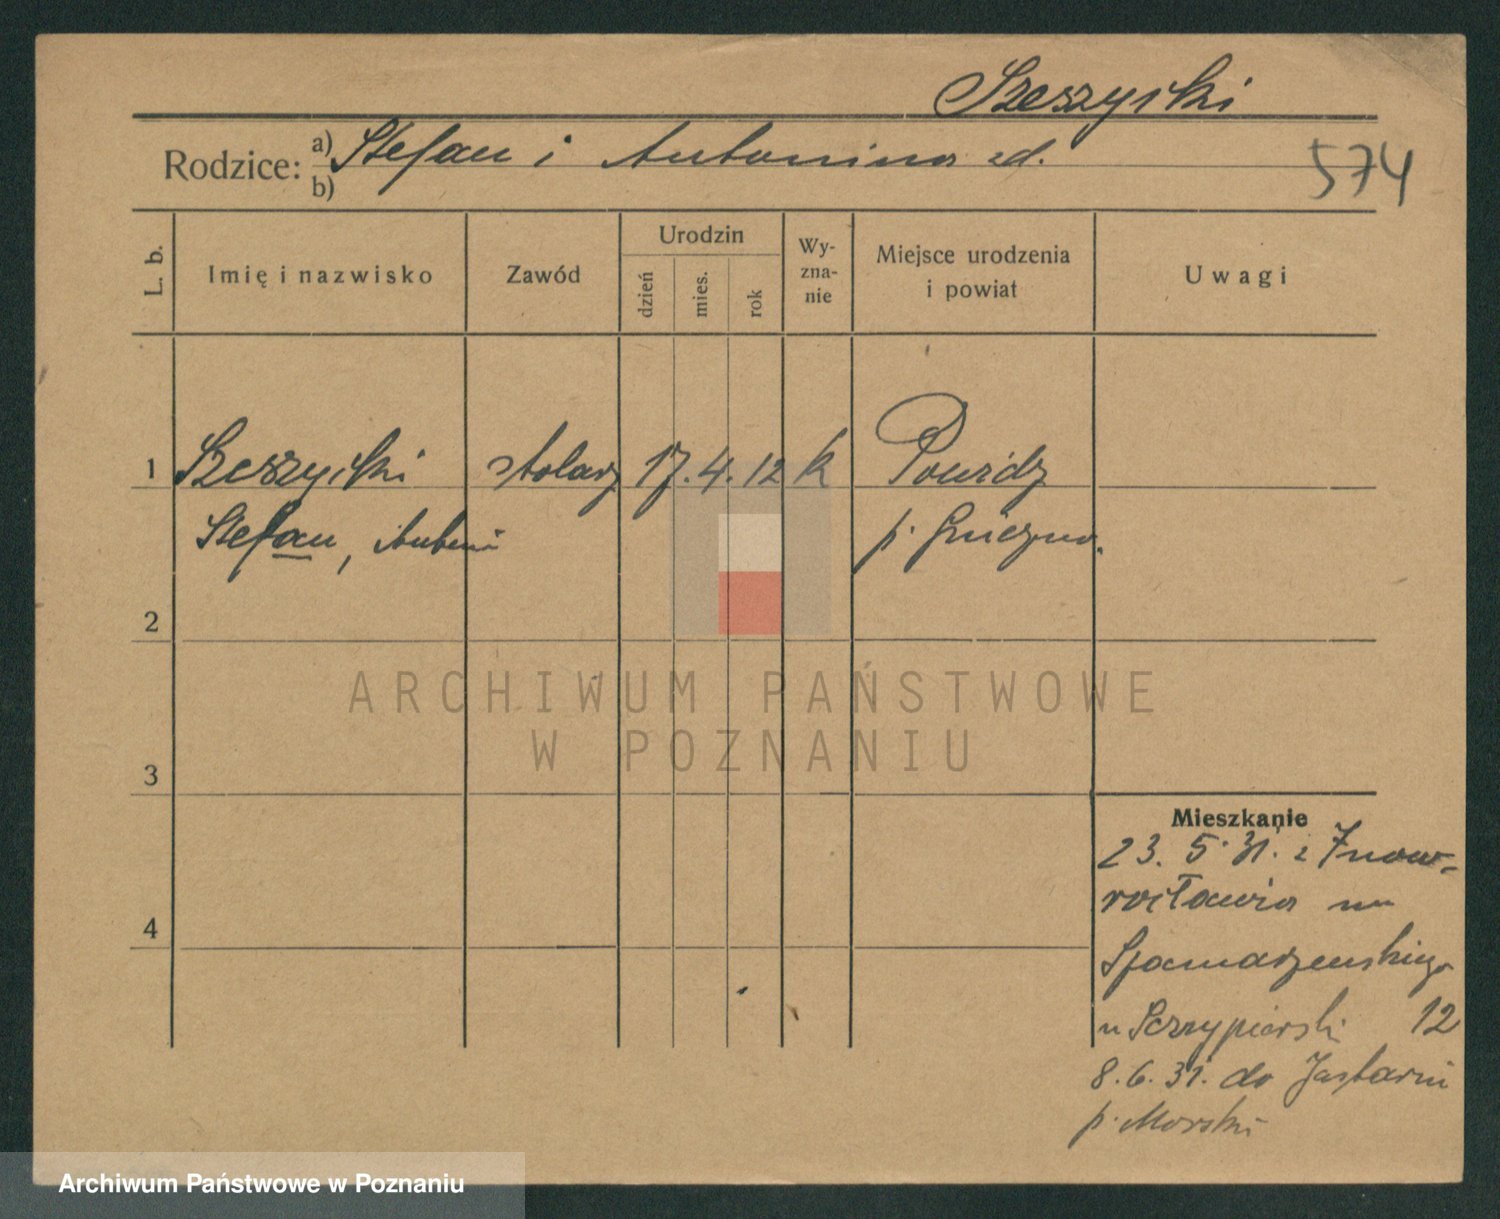 Szeszycki
Rodzice: a) Stefan i Antonina zd.
b)
574
L. b.
Imię i nazwisko
Zawód
Urodzin
dzień
mies.
rok
Wy-
zna-
nie
Miejsce urodzenia
i powiat
Uwagi
1 Szeszycki stolarz 17. 4. 12 k Powidz
Stefan, Antoni p. Gniezno.
2
3
4
ARCHIWUM PAŃSTWOWE
W POZNANIU
Mieszkanie
23. 5. 31. z Inow-
rocławia na
12
8. 6. 31. do Jastarni
p. Morski
Archiwum Państwowe w Poznaniu